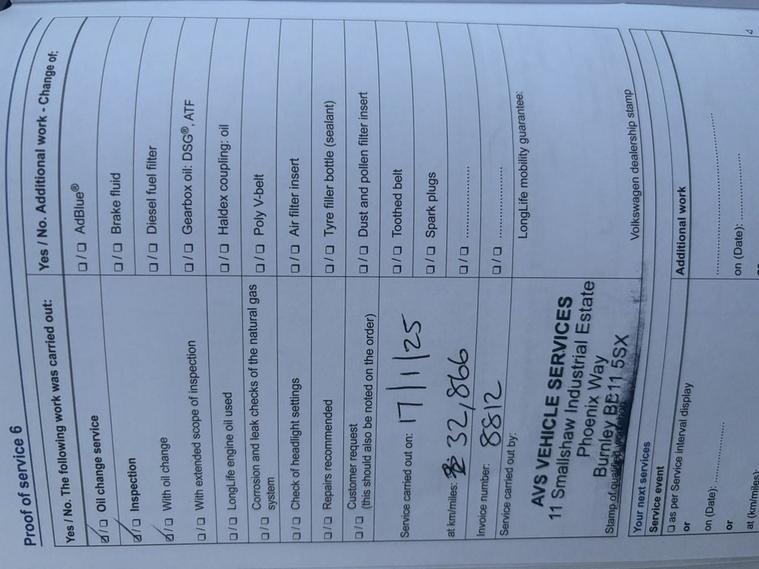 Proof of service 6
Yes / No. The following work was carried out:
☑/☐ Oil change service
☑/☐ Inspection
☑/☐ With oil change
☐/☐ With extended scope of inspection
☐/☐ LongLife engine oil used
Corrosion and leak checks of the natural gas
☐/☐ system
☐/☐ Check of headlight settings
☐/☐ Repairs recommended
☐/☐ Customer request
(this should also be noted on the order)
Service carried out on: 17/1/25
at km/miles: 32,866
Invoice number: 8812
Service carried out by:
AVS VEHICLE SERVICES
11 Smallshaw Industrial Estate
Phoenix Way
Burnley BB11 5SX
Stamp of
Yes / No. Additional work - Change of:
☐/☐ AdBlue®
☐/☐ Brake fluid
☐/☐ Diesel fuel filter
☐/☐ Gearbox oil: DSG®, ATF
☐/☐ Haldex coupling: oil
☐/☐ Poly V-belt
☐/☐ Air filter insert
☐/☐ Tyre filler bottle (sealant)
☐/☐ Dust and pollen filter insert
☐/☐ Toothed belt
☐/☐ Spark plugs
☐/☐ ....................
☐/☐ ....................
LongLife mobility guarantee:
Volkswagen dealership stamp
Your next services
Service event
☐ as per Service interval display
or
on (Date): ....................
or
at (km/miles):
Additional work
....................
on (Date): ....................
or